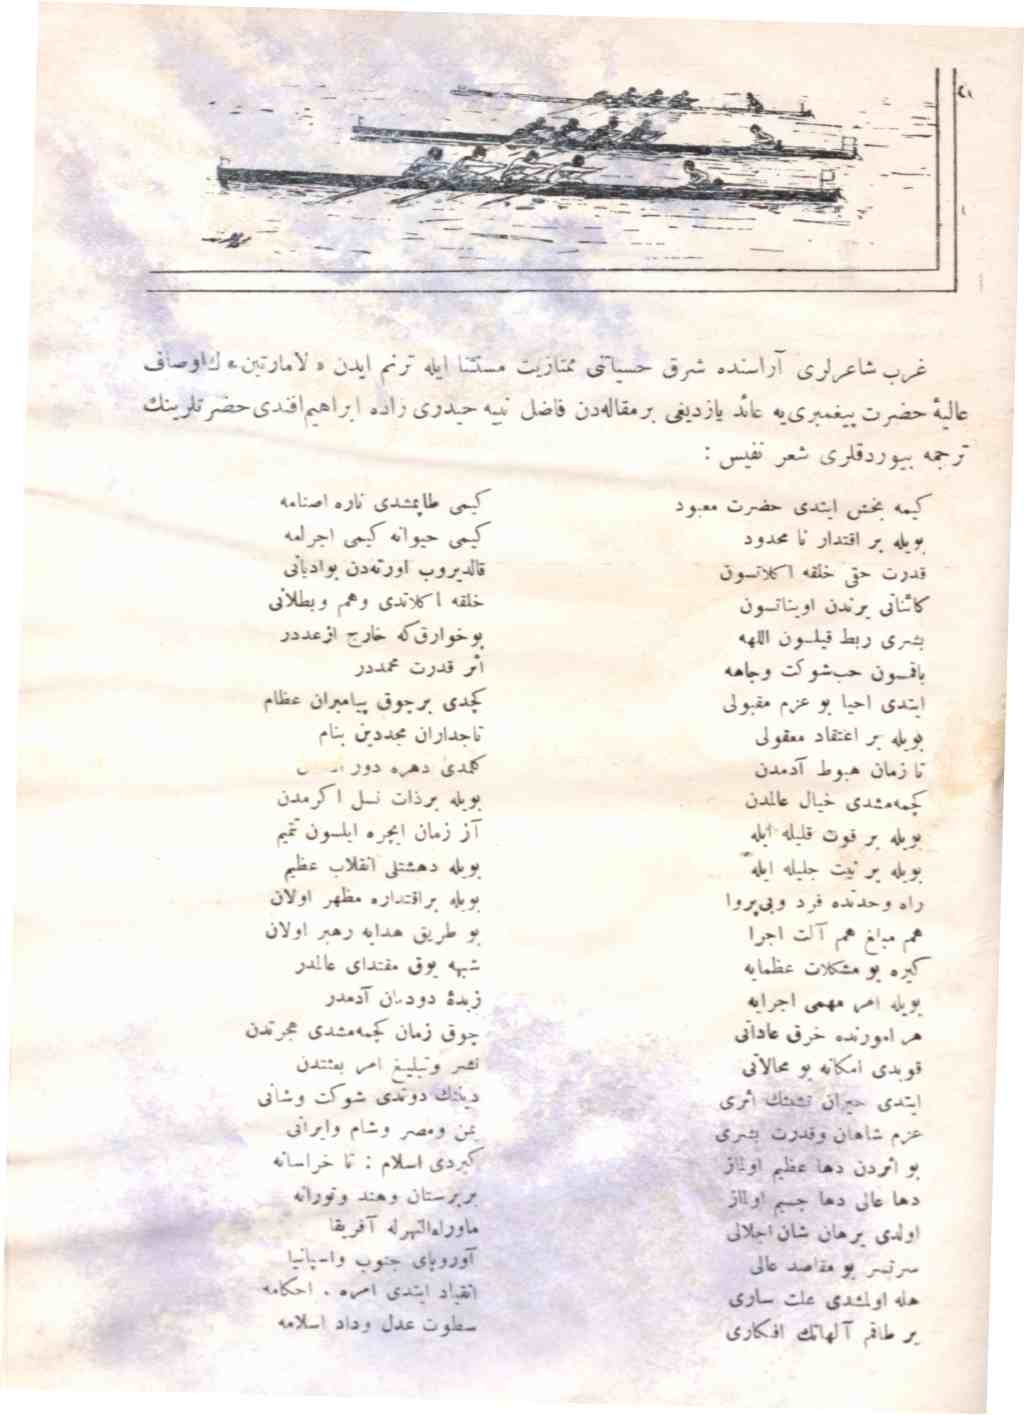 غرب شاعرلری آراسنده شرق حسیاتنی ممتازیت مستثنا ایله ترنم ایدن «لامارتین» ك اوصاف
عالیهٔ حضرت پیغمبری‌یه عائد یازدیغی بر مقاله‌دن فاضل نبیه حیدری زاده ابراهیم افندی حضرتلرینك
ترجمه بیوردقلری شعر نفیس :
كیمه بخش ایتدی حضرت معبود
بویله بر اقتدار نا محدود
قدرت حقی خلقه اكلاتسون
كائناتی یرندن اویناتسون
بشری ربط قیلسون اللهه
باقمسون حب شوكت وجاهه
ایتدی احیا بو عزم مقبولی
بویله بر اعتقاد معقولی
تا زمان هبوط آدمدن
كچمه‌مشدی خیال عالمدن
بویله بر قوت قلیله ایله
بویله بر نیت جلیله ایله
راه وحدتده فرد وبی‌پروا
هم مبلغ هم آلت اجرا
كیره بو مشكلات عظمایه
بویله امر مهمی اجرایه
هر امورنده خرق عاداتی
قویدی امكانه بو محالاتی
ایتدی حیران تشبثك اثری
عزم شاهان وقدرت بشری
بو اثردن دها عظیم اولماز
دها عالی دها جسیم اولماز
اولدی برهان شان اجلالی
سرتسر بو مقاصد عالی
هله اولمشدی علت ساری
بر طاقم آلهاتك افكاری
كیمی طاپمشدی ناره اصنامه
كیمی حیوانه كیمی اجرامه
قالدیروب اورته‌دن بو ادیانی
خلقه اكلاتدی وهم وبطلانی
بو خوارق كه خارج از عددر
اثر قدرت محمددر
كچدی بر چوق پیامبران عظام
تاجداران مجددین بنام
كلمدی دهره دور
بویله بر ذات نسل اكرمدن
آز زمان ایچره ایلسون تتمیم
بویله دهشتلی انقلاب عظیم
بویله بر اقتداره مظهر اولان
بو طریق هدایه رهبر اولان
شبهه یوق مقتدای عالمدر
زبدهٔ دودمان آدمدر
چوق زمان كچمه‌مشدی هجرتدن
نشر وتبلیغ امر بعثتدن
دیننك دوندی شوكت وشانی
یمن ومصر وشام وایرانی
كیردی اسلام : تا خراسانه
بربرستان وهند وتورانه
ماوراءالنهرله آفریقا
آوروپای جنوب واسپانیا
انقیاد ایتدی امره . احكامه
سطوت عدل وداد اسلامه